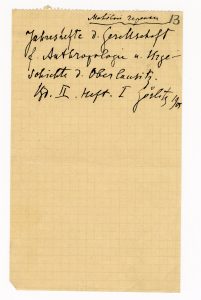 13
Jahreshefte d. Gesellschaft
f. Anthropologie u. Urge-
schichte d. Oberlausitz.
Bd. II. Heft. I Görlitz